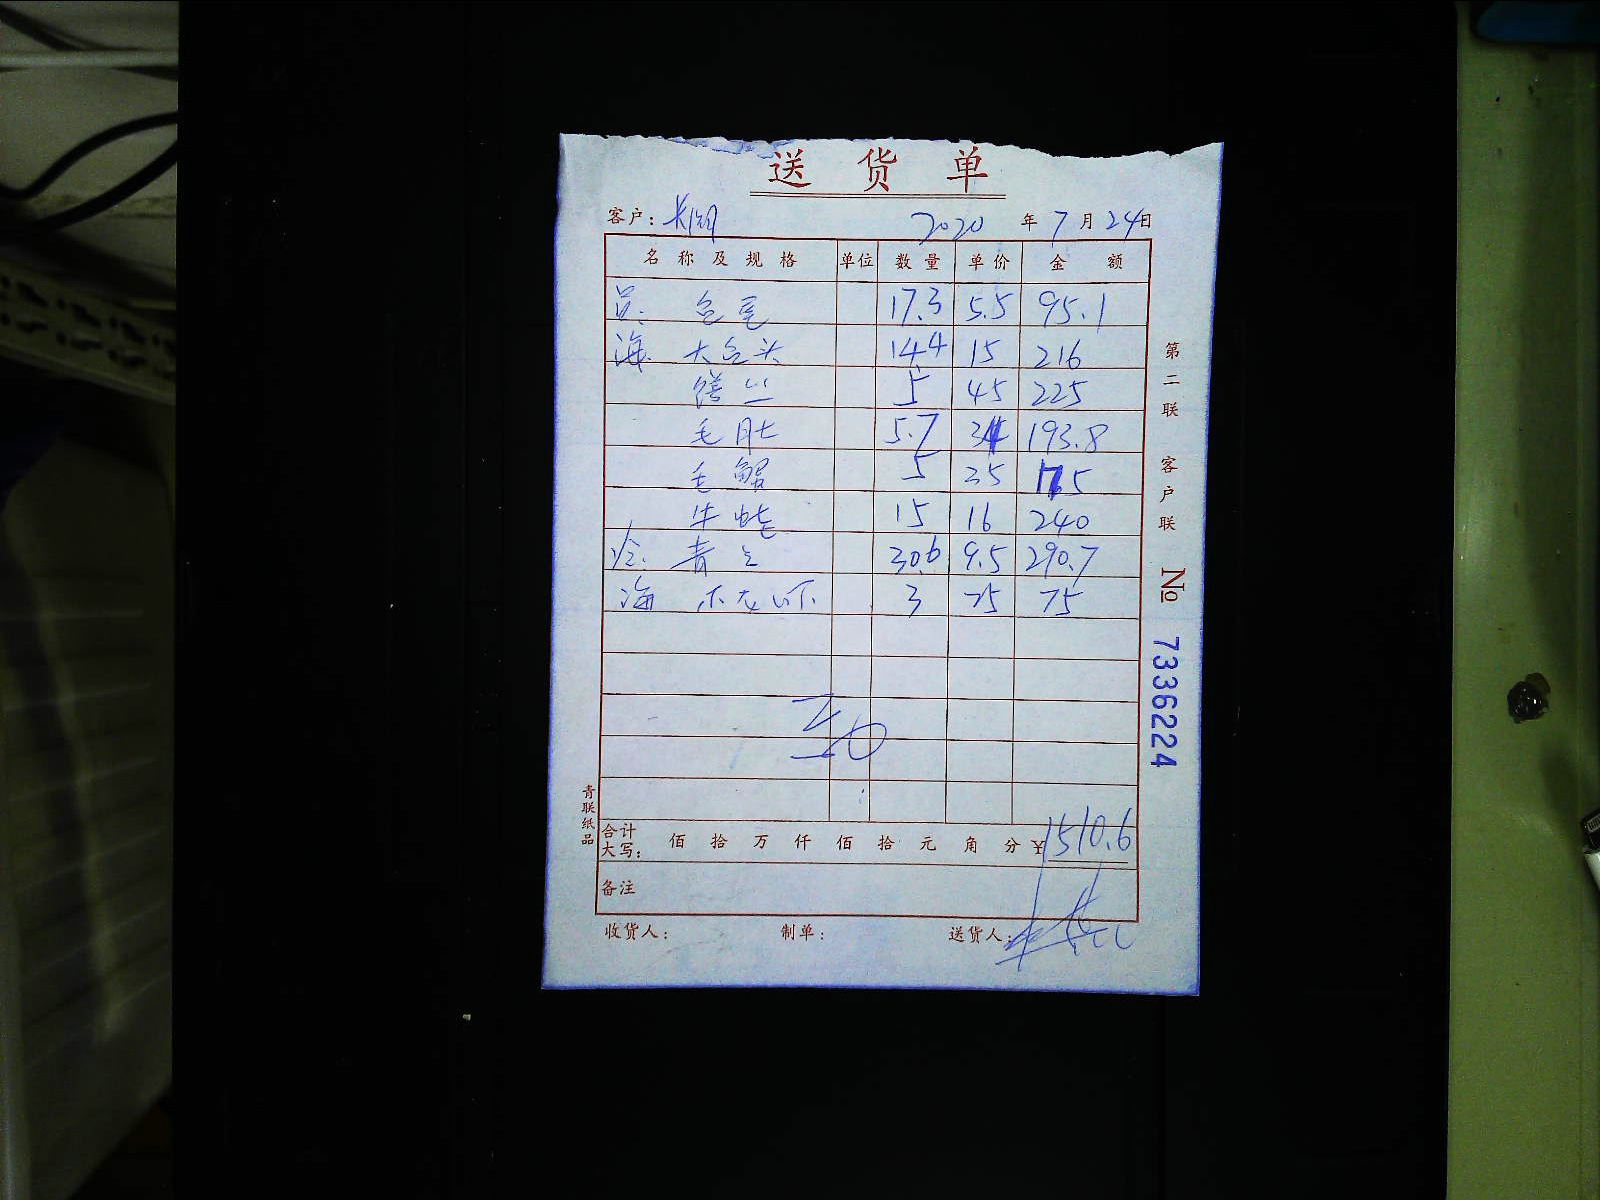 送 货 单
客户: 2020 年 7 月 24 日
名 称 及 规 格 单位 数 量 单 价 金 额
鱼尾 17.3 5.5 95.1
海. 大鱼头 14.4 15 216
鳝丝 5 45 225
毛肚 5.7 34 193.8
毛蟹 5 35 175
牛蛙 15 16 240
30.6 9.5 290.7
海 3 25 75
合计大写: 佰 拾 万 仟 佰 拾 元 角 分 ¥1510.6
备注
收货人: 制单: 送货人:
第二联 客户联 No 7336224
青联纸品